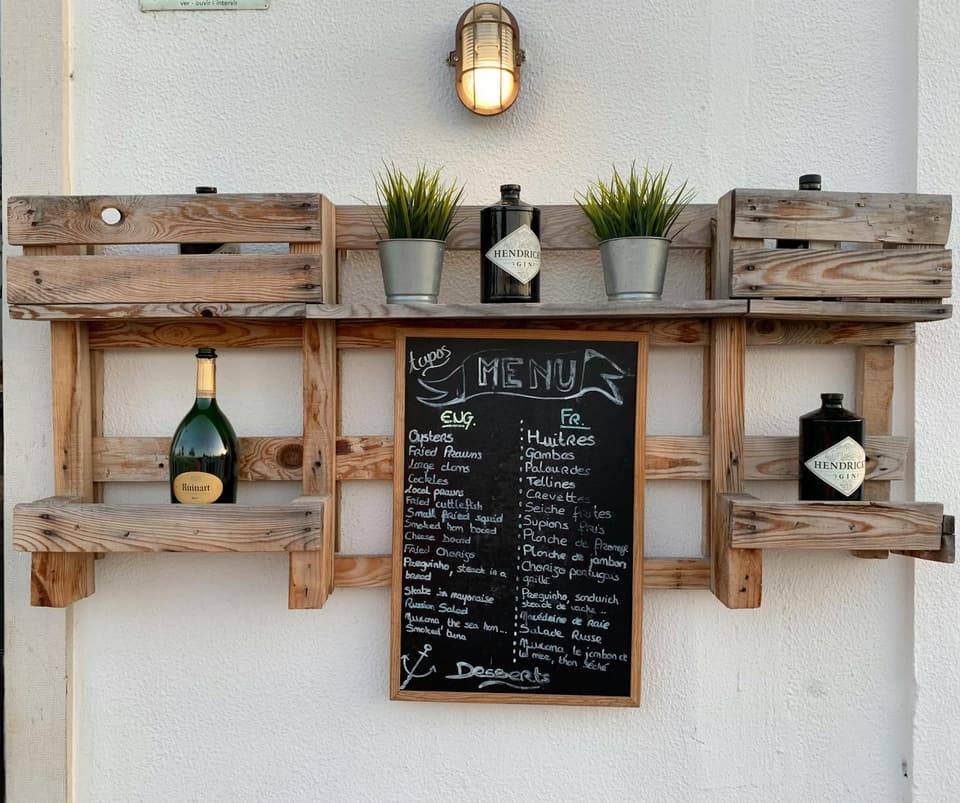 ver - ouvir i intervir
HENDRICK
GIN
Ruinart
HENDRICK
GIN
tapas
MENU
ENG.
Oysters
Fried Prawns
Large clams
Cockles
Local prawns
Fried cuttlefish
Small fried squid
Smoked ham board
Cheese board
Fried Chorizo
Preguinho, steack in a
bread
Skate in mayonaise
Russian Salad
Muxama the sea ham...
Smoked tuna
FR.
Huitres
Gambas
Palourdes
Tellines
Crevettes
Seiche frites
Supions fris
Planche de fromage
Planche de jambon
Chorizo portugais
grillé
Preguinho, sandwich
steack de vache..
de Raie
Salade Russe
Muxama le jambon de
la mer, thon séché
Desserts